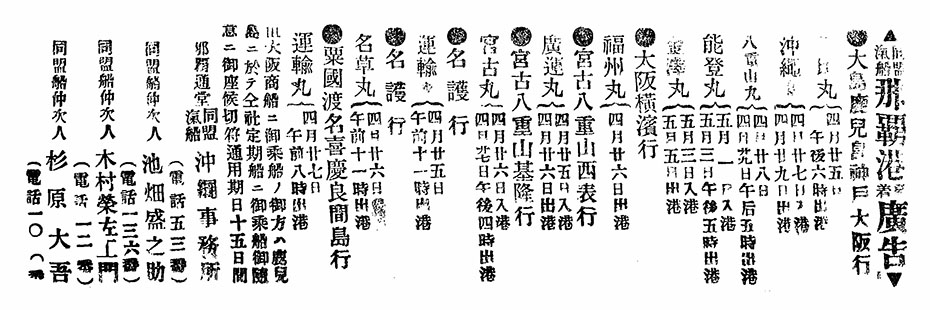 ▲同盟汽船那覇港発着廣告▼
●大島鹿兒島神戸大阪行
丸 四月廿五日 午後六時出港
沖縄丸 四月廿七日入港 四月廿九日出港
八重山丸 四月廿八日入港 四月廿九日午后五時出港
能登丸 五月一日入港 五月三日午後五時出港
金澤丸 五月三日入港 五月五日出港
●大阪橫濱行
福州丸 四月廿六日出港
●宮古八重山西表行
廣運丸 四月廿五日入港 四月廿六日出港
●宮古八重山基隆行
宮古丸 四月廿六日入港 四月廿七日午後四時出港
●名護行
運輸丸 四月廿五日 午前十一時出港
●名護行
名草丸 四月廿六日 午前十一時出港
●粟國渡名喜慶良間島行
運輸丸 四月廿七日 午前八時出港
大阪商船ニ御乘船ノ御方ハ鹿兒
島ニ於テ仝社定期船ニ御乘船御随
意ニ御座候切符通用期日十五日間
那覇通堂 同盟汽船 沖繩事務所
(電話五三番)
同盟船仲次人 池畑盛之助
(電話一三六番)
同盟船仲次人 木村榮左上門
(電話一二番)
同盟船仲次人 杉原大吾
(電話一〇番)